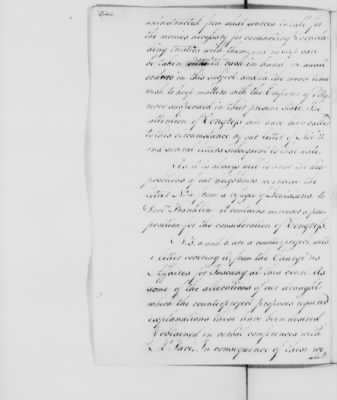 uninstructed from what sources to call for
the monies necessary for commencing & conclu-
ding treaties with them, and no step can
be taken without cash in hand. We await
orders on this subject and in the mean time
wish to keep matters with the Emperor of Mo-
rocco suspended in their present state. The
attention of Congress will have been called
to this circumstance by our letter of Nov. 11
and several letters subsequent to that date.
As it is always well to know the dis-
positions of our neighbours we enclose the
letter No. from a refugee of Louisiana to
Doctr. Franklin. it contains moreover a pro-
position for the consideration of Congress.
No. is a counter project with
a letter covering it, from the Chargé des
Affaires for Tuscany at this court. As
some of the alterations of our draught
which the counterproject proposes required
explanations these have been desired
& obtained in verbal conferences with
Mr. Favi. In consequence of these we